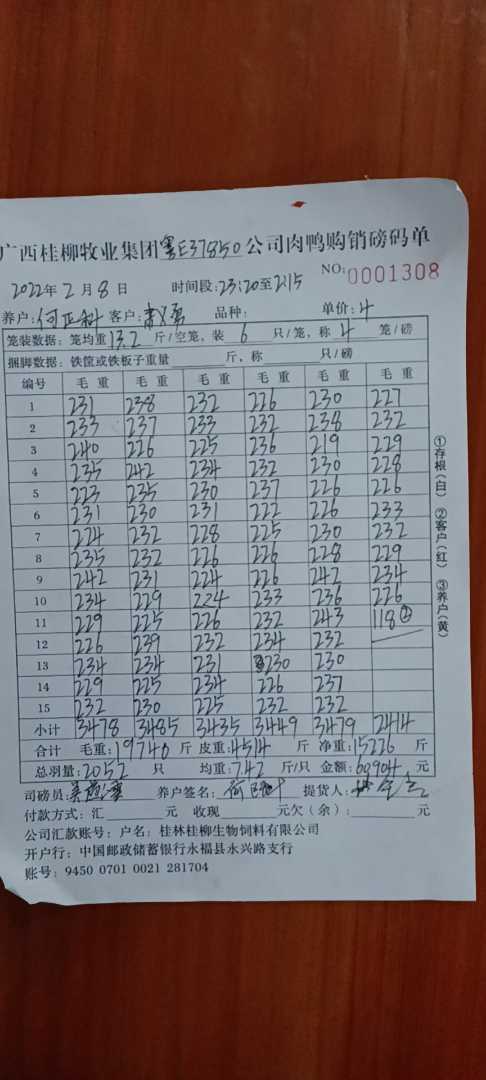 广西桂柳牧业集团粤E37850公司肉鸭购销磅码单
NO: 0001308
2022年2月8日 时间段:23:20至2:15
养户: 客户: 品种: 单价:4
笼装数据:笼均重13.2斤/空笼,装6只/笼,称4笼/磅
捆脚数据:铁筐或铁板子重量 斤,称 只/磅
编号 毛重 毛重 毛重 毛重 毛重 毛重
1 231 238 232 226 230 227
2 233 237 233 232 238 232
3 240 226 225 236 219 229
4 235 242 234 232 230 228
5 223 235 230 237 226 226
6 231 230 231 222 226 233
7 224 232 228 225 230 232
8 235 232 226 226 228 229
9 242 231 224 226 242 234
10 234 229 224 233 236 226
11 229 225 226 232 243 118②
12 226 239 232 234 232
13 234 234 231 230 230
14 229 225 234 226 237
15 232 230 225 232 232
小计 3478 3485 3435 3449 3479 2414
合计 毛重:19740斤 皮重:4514斤 净重:15226斤
总羽量:2052只 均重:7.42斤/只 金额:60904元
司磅员: 养户签名: 提货人:
付款方式:汇 元 收现 元欠(余): 元
公司汇款账号:户名:桂林桂柳生物饲料有限公司
开户行:中国邮政储蓄银行永福县永兴路支行
账号:9450 0701 0021 281704
①存根(白) ②客户(红) ③养户(黄)